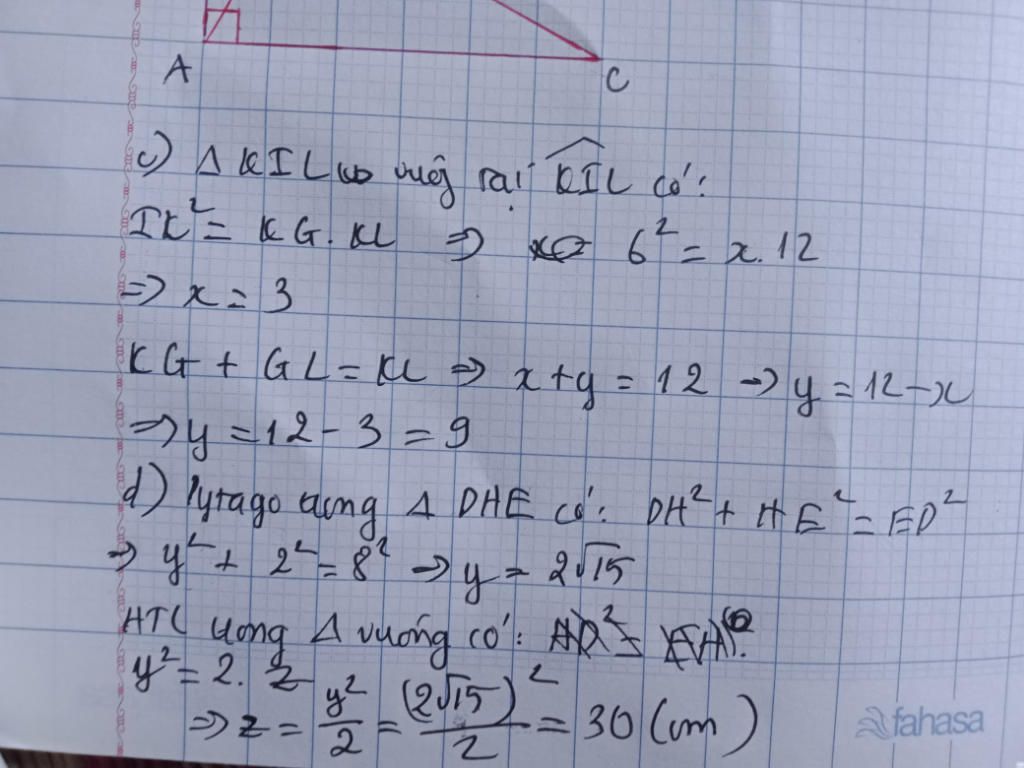 A
C
c) Δ KIL vuông tại KIL có:
IK² = KG. KL ⇒ 6² = x.12
⇒ x = 3
KG + GL = KL ⇒ x+y = 12 → y = 12-x
⇒ y = 12 - 3 = 9
d) Pytago trong Δ DHE có: DH² + HE² = ED²
⇒ y² + 2² = 8² → y = 2√15
HTL trong Δ vuông có:
y² = 2. z
⇒ z = y²/2 = (2√15)²/2 = 30 (cm)
fahasa